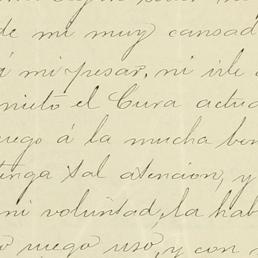 de mi muy cansad
á mi pesar, ni irle
nieto el Cura actua
uego á la mucha ben
tenga tal atencion, y
mi voluntad, la hab
ruego uso, y con